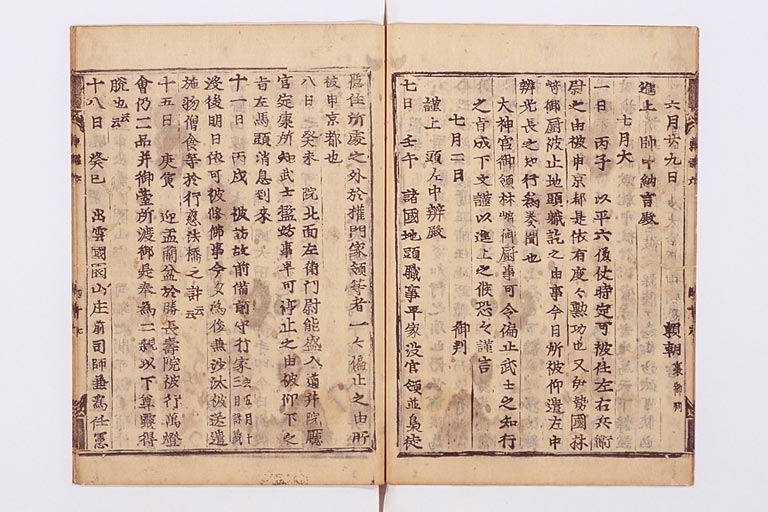 六月廿九日 頼朝 裏御判
進上 帥中納言殿
七月大
一日 丙子 以平六傔仗時定可被任左右兵衛
尉之由被申京都是依有度々勲功也又伊勢國林
崎御厨被止地頭職訖之由事今日所被仰遣左中
辨光長之知行為奏聞也
大神宮御領林崎御厨事可令停止武士之知行
之旨成下文謹以進上之候恐々謹言
七月一日 御判
謹上 頭左中辨殿
七日 壬午 諸國地頭職事平家没官領並梟徒
隠住所處之外於權門家領等者一々停止之由所
被申京都也
八日 癸未 院北面左衛門尉能盛入道并院廳
官定康所知武士盬妨事早可停止之由被仰下之
旨左馬頭消息到来
十一日 丙戌 被訪故前備前守行家 去五月十二日誅戮
没後明日依可被修佛事今為後無沙汰被送遣
施物僧食等於行慈法橋之許云云
十五日 庚寅 迎盂蘭盆於勝長壽院被行萬燈
會仍二品并御臺所渡御是奉為二親以下尊霊得
脱也云云
十八日 癸巳 出雲國園山庄前司師兼為任憲